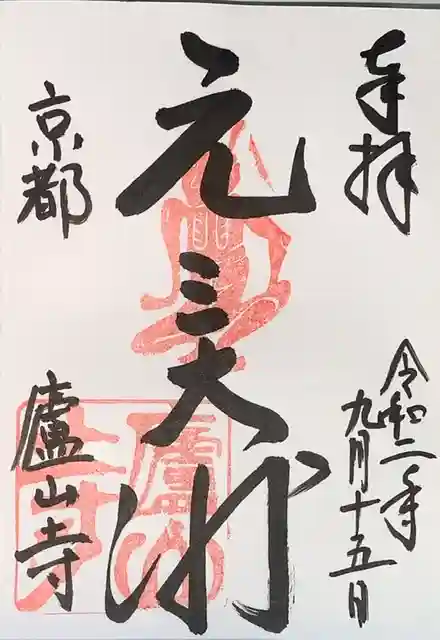 奉拝
令和二年
九月十五日
元三大师
京都
廬山寺